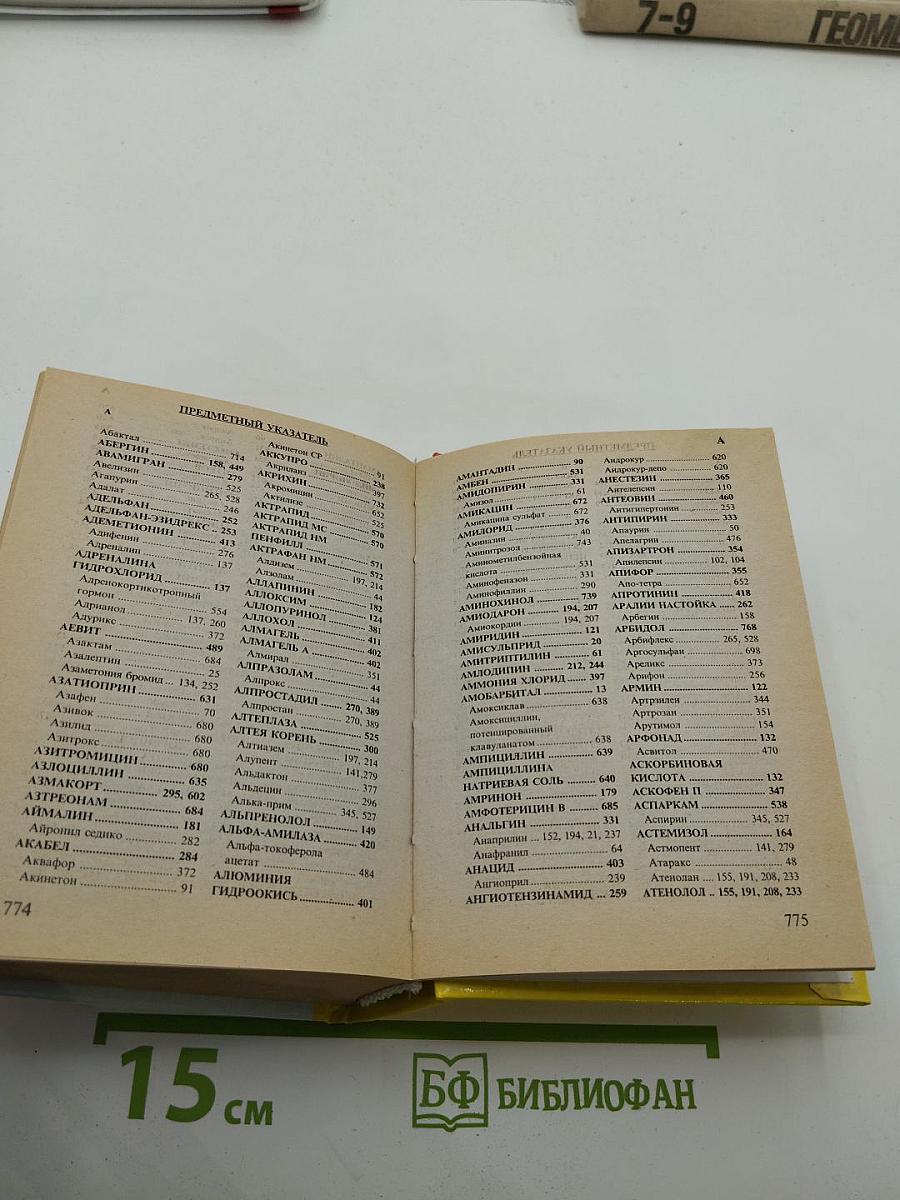 7-9 ГЕОМЕ
А
ПРЕДМЕТНЫЙ УКАЗАТЕЛЬ
Абактал 714
АБЕРГИН 158, 449
АВАМИГРАН 279
Авелизин 525
Агапурин 265, 528
Адалат 246
АДЕЛЬФАН 252
АДЕЛЬФАН-ЭЗИДРЕКС 253
АДЕМЕТИОНИН 413
Адифенин 276
Адреналин 137
АДРЕНАЛИНА
ГИДРОХЛОРИД 137
Адренокортикотропный
гормон 554
Адрианол 137, 260
Адурикс 372
АЕВИТ 489
Азактам 684
Азалептин 25
Азаметония бромид 134, 252
АЗАТИОПРИН 631
Азафен 70
Азивок 680
Азилид 680
Азитрокс 680
АЗИТРОМИЦИН 680
АЗЛОЦИЛЛИН 635
АЗМАКОРТ 295, 602
АЗТРЕОНАМ 684
АЙМАЛИН 181
Айронил седико 282
АКАБЕЛ 284
Аквафор 372
Акинетон 91
774
Акинетон СР 91
АККУПРО 238
Акриланз 397
АКРИХИН 732
Акромицин 652
Актилизе 525
АКТРАПИД 570
АКТРАПИД МС 570
АКТРАПИД НМ
ПЕНФИЛЛ 571
АКТРАФАН НМ 572
Алдизем 197, 214
Алзолам 44
АЛЛАПИНИН 182
АЛЛОКСИМ 124
АЛЛОПУРИНОЛ 381
АЛЛОХОЛ 411
АЛМАГЕЛЬ 402
АЛМАГЕЛЬ А 402
Алмирал 351
АЛПРАЗОЛАМ 44
Алпрокс 44
АЛПРОСТАДИЛ 270, 389
Алпростан 270, 389
АЛТЕПЛАЗА 525
АЛТЕЯ КОРЕНЬ 300
Алтиазем 197, 214
Алупент 141,279
Альдактон 377
Альдецин 296
Алька-прим 345, 527
АЛЬПРЕНОЛОЛ 149
АЛЬФА-АМИЛАЗА 420
Альфа-токоферола
ацетат 484
АЛЮМИНИЯ
ГИДРООКИСЬ 401
А
АМАНТАДИН 90
АМБЕН 531
АМИДОПИРИН 331
Амизол 61
АМИКАЦИН 672
Амикацина сульфат 672
АМИЛОРИД 376
Аминазин 40
Аминитрозол 743
Аминометилбензойная
кислота 531
Аминофеназон 331
Аминофиллин 290
АМИНОХИНОЛ 739
АМИОДАРОН 194, 207
Амиокордин 194, 207
АМИРИДИН 121
АМИСУЛЬПРИД 20
АМИТРИПТИЛИН 61
АМЛОДИПИН 212, 244
АММОНИЯ ХЛОРИД 397
АМОБАРБИТАЛ 13
Амоксиклав 638
Амоксициллин,
потенцированный
клавуланатом 638
АМПИЦИЛЛИН 639
АМПИЦИЛЛИНА
НАТРИЕВАЯ СОЛЬ 640
АМРИНОН 179
АМФОТЕРИЦИН В 685
АНАЛЬГИН 331
Анаприлин 152, 194, 21, 237
Анафранил 64
АНАЦИД 403
Ангиоприл 239
АНГИОТЕНЗИНАМИД 259
Андрокур 620
Андрокур-депо 620
АНЕСТЕЗИН 365
Антелепсин 110
АНТЕОВИН 460
Антигипертонин 253
АНТИПИРИН 333
Апаурин 50
Апелагрин 476
АПИЗАРТРОН 354
Апилепсин 102, 104
АПИФОР 355
Апо-тетра 652
АПРОТИНИН 418
АРАЛИИ НАСТОЙКА 262
Арбегин 158
АРБИДОЛ 768
Арбифлекс 265, 528
Аргосульфан 698
Ареликс 373
Арифон 256
АРМИН 122
Артрзилен 344
Артрозан 351
Арутимол 154
АРФОНАД 132
Асвитол 470
АСКОРБИНОВАЯ
КИСЛОТА 132
АСКОФЕН П 347
АСПАРКАМ 538
Аспирин 345, 527
АСТЕМИЗОЛ 164
Астмопент 141, 279
Атаракс 48
Атенолан 155, 191, 208, 233
АТЕНОЛОЛ 155, 191, 208, 233
775
15 см
БФ БИБЛИОФАН